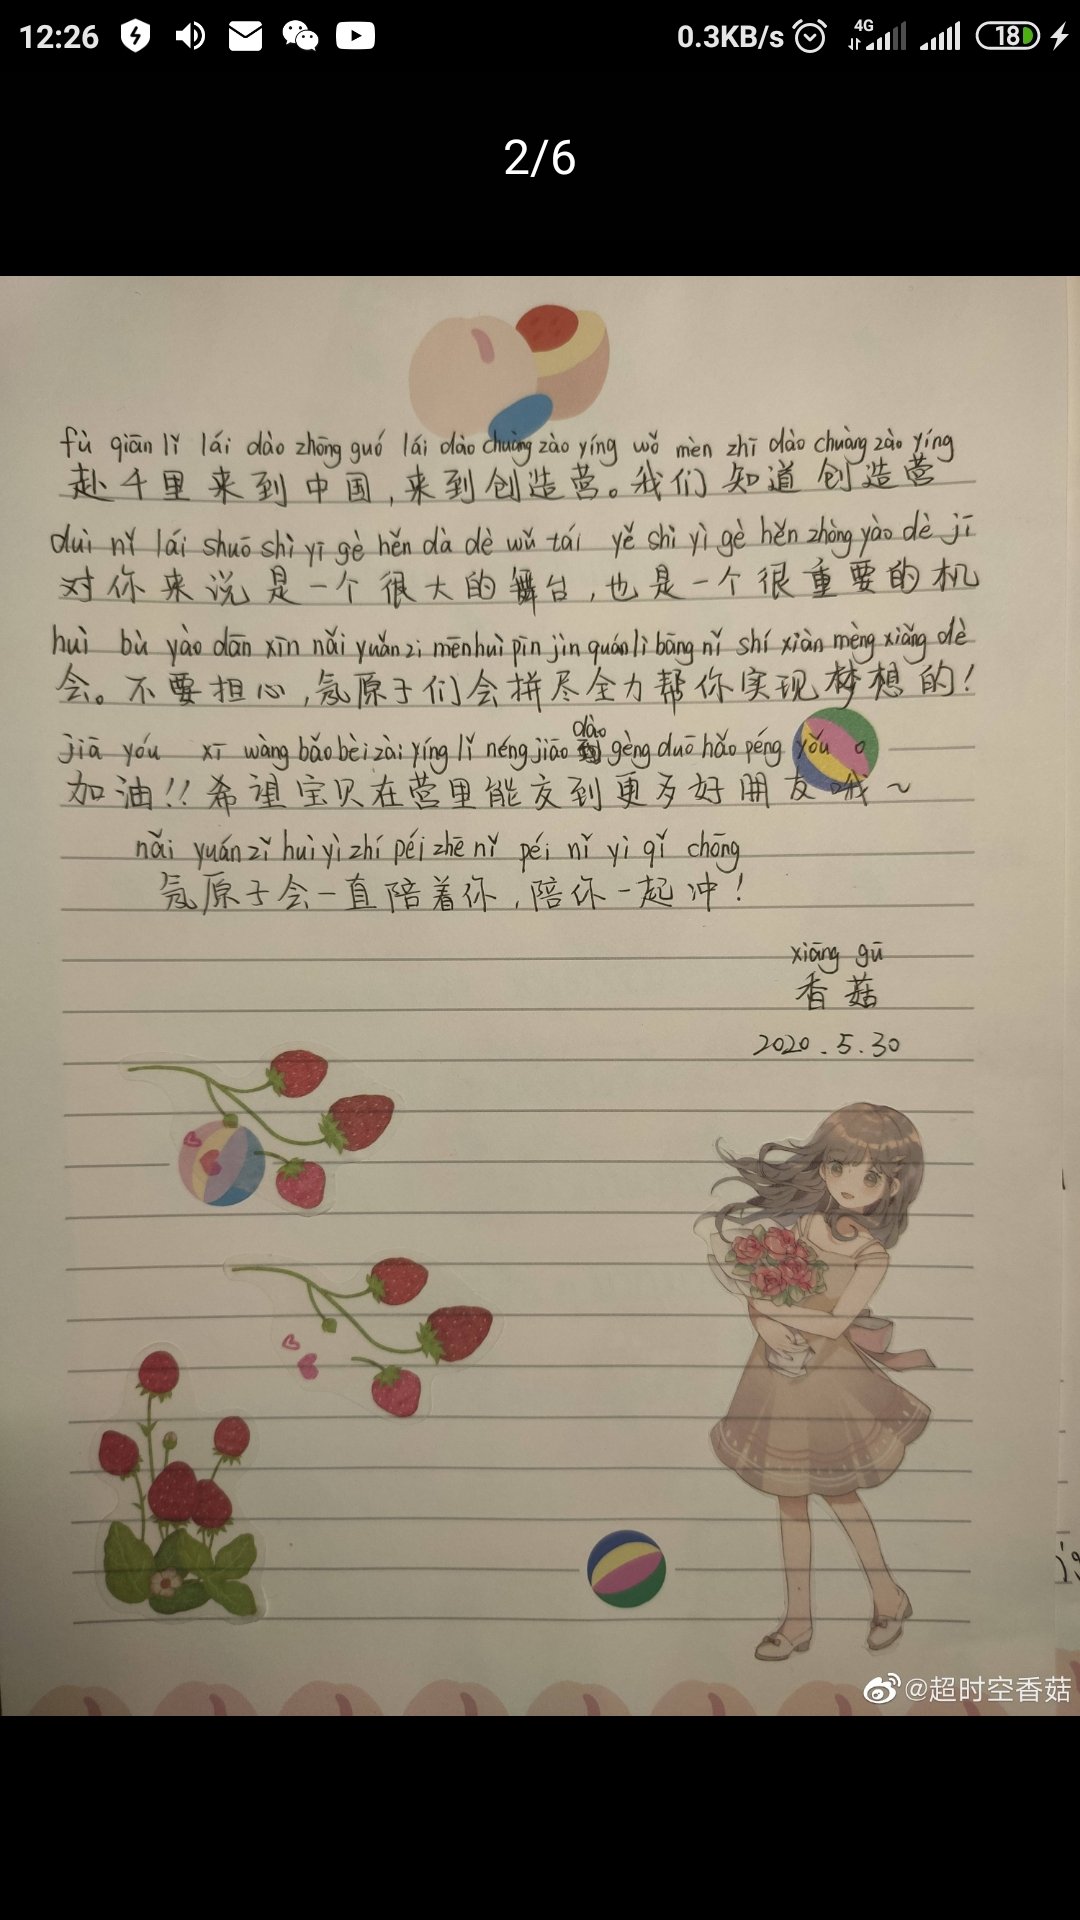 12:26
0.3KB/s 4G 18
2/6
fù qiān lǐ lái dào zhōng guó lái dào chuàng zào yíng wǒ mèn zhī dào chuàng zào yíng
赴千里来到中国,来到创造营。我们知道创造营
duì nǐ lái shuō shì yī gè hěn dà dè wǔ tái yě shì yì gè hěn zhòng yào dè jī
对你来说是一个很大的舞台,也是一个很重要的机
huì bù yào dān xīn nǎi yuǎn zi mēn huì pīn jìn quán lì bāng nǐ shí xiàn mèng xiǎng dè
会。不要担心,氖原子们会拼尽全力帮你实现梦想的!
jiā yóu xī wàng bǎo bèi zài yíng lǐ néng jiāo dào gèng duō hǎo péng yǒu o
加油!!希望宝贝在营里能交到更多好朋友哦~
nǎi yuán zǐ huì yì zhí péi zhē nǐ péi nǐ yì qǐ chōng
氖原子会一直陪着你,陪你一起冲!
xiāng gū
香菇
2020.5.30
@超时空香菇